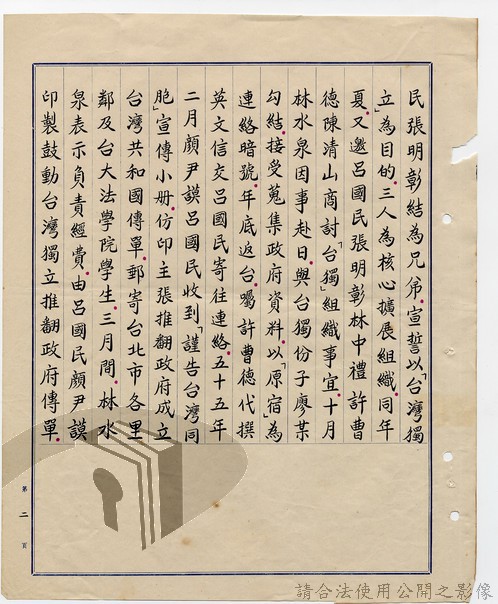 民張明彰結為兄弟。宣誓以「台灣獨
立」為目的。三人為核心擴展組織。同年
夏。又邀呂國民張明彰林中禮許曹
德陳清山商討「台獨」組織事宜。十月
林水泉因事赴日。與台獨份子廖某
勾結。接受蒐集政府資料。以「原宿」為
連絡暗號。年底返台。囑許曹德代撰
英文信交呂國民寄往連絡。五十五年
二月顏尹謨呂國民收到「謹告台灣同
胞」宣傳小冊。仿印主張推翻政府成立
台灣共和國傳單。郵寄台北市各里
鄰及台大法學院學生。三月間。林水
泉表示負責經費。由呂國民顏尹謨
印製鼓動台灣獨立推翻政府傳單。
第二頁
請合法使用公開之影像